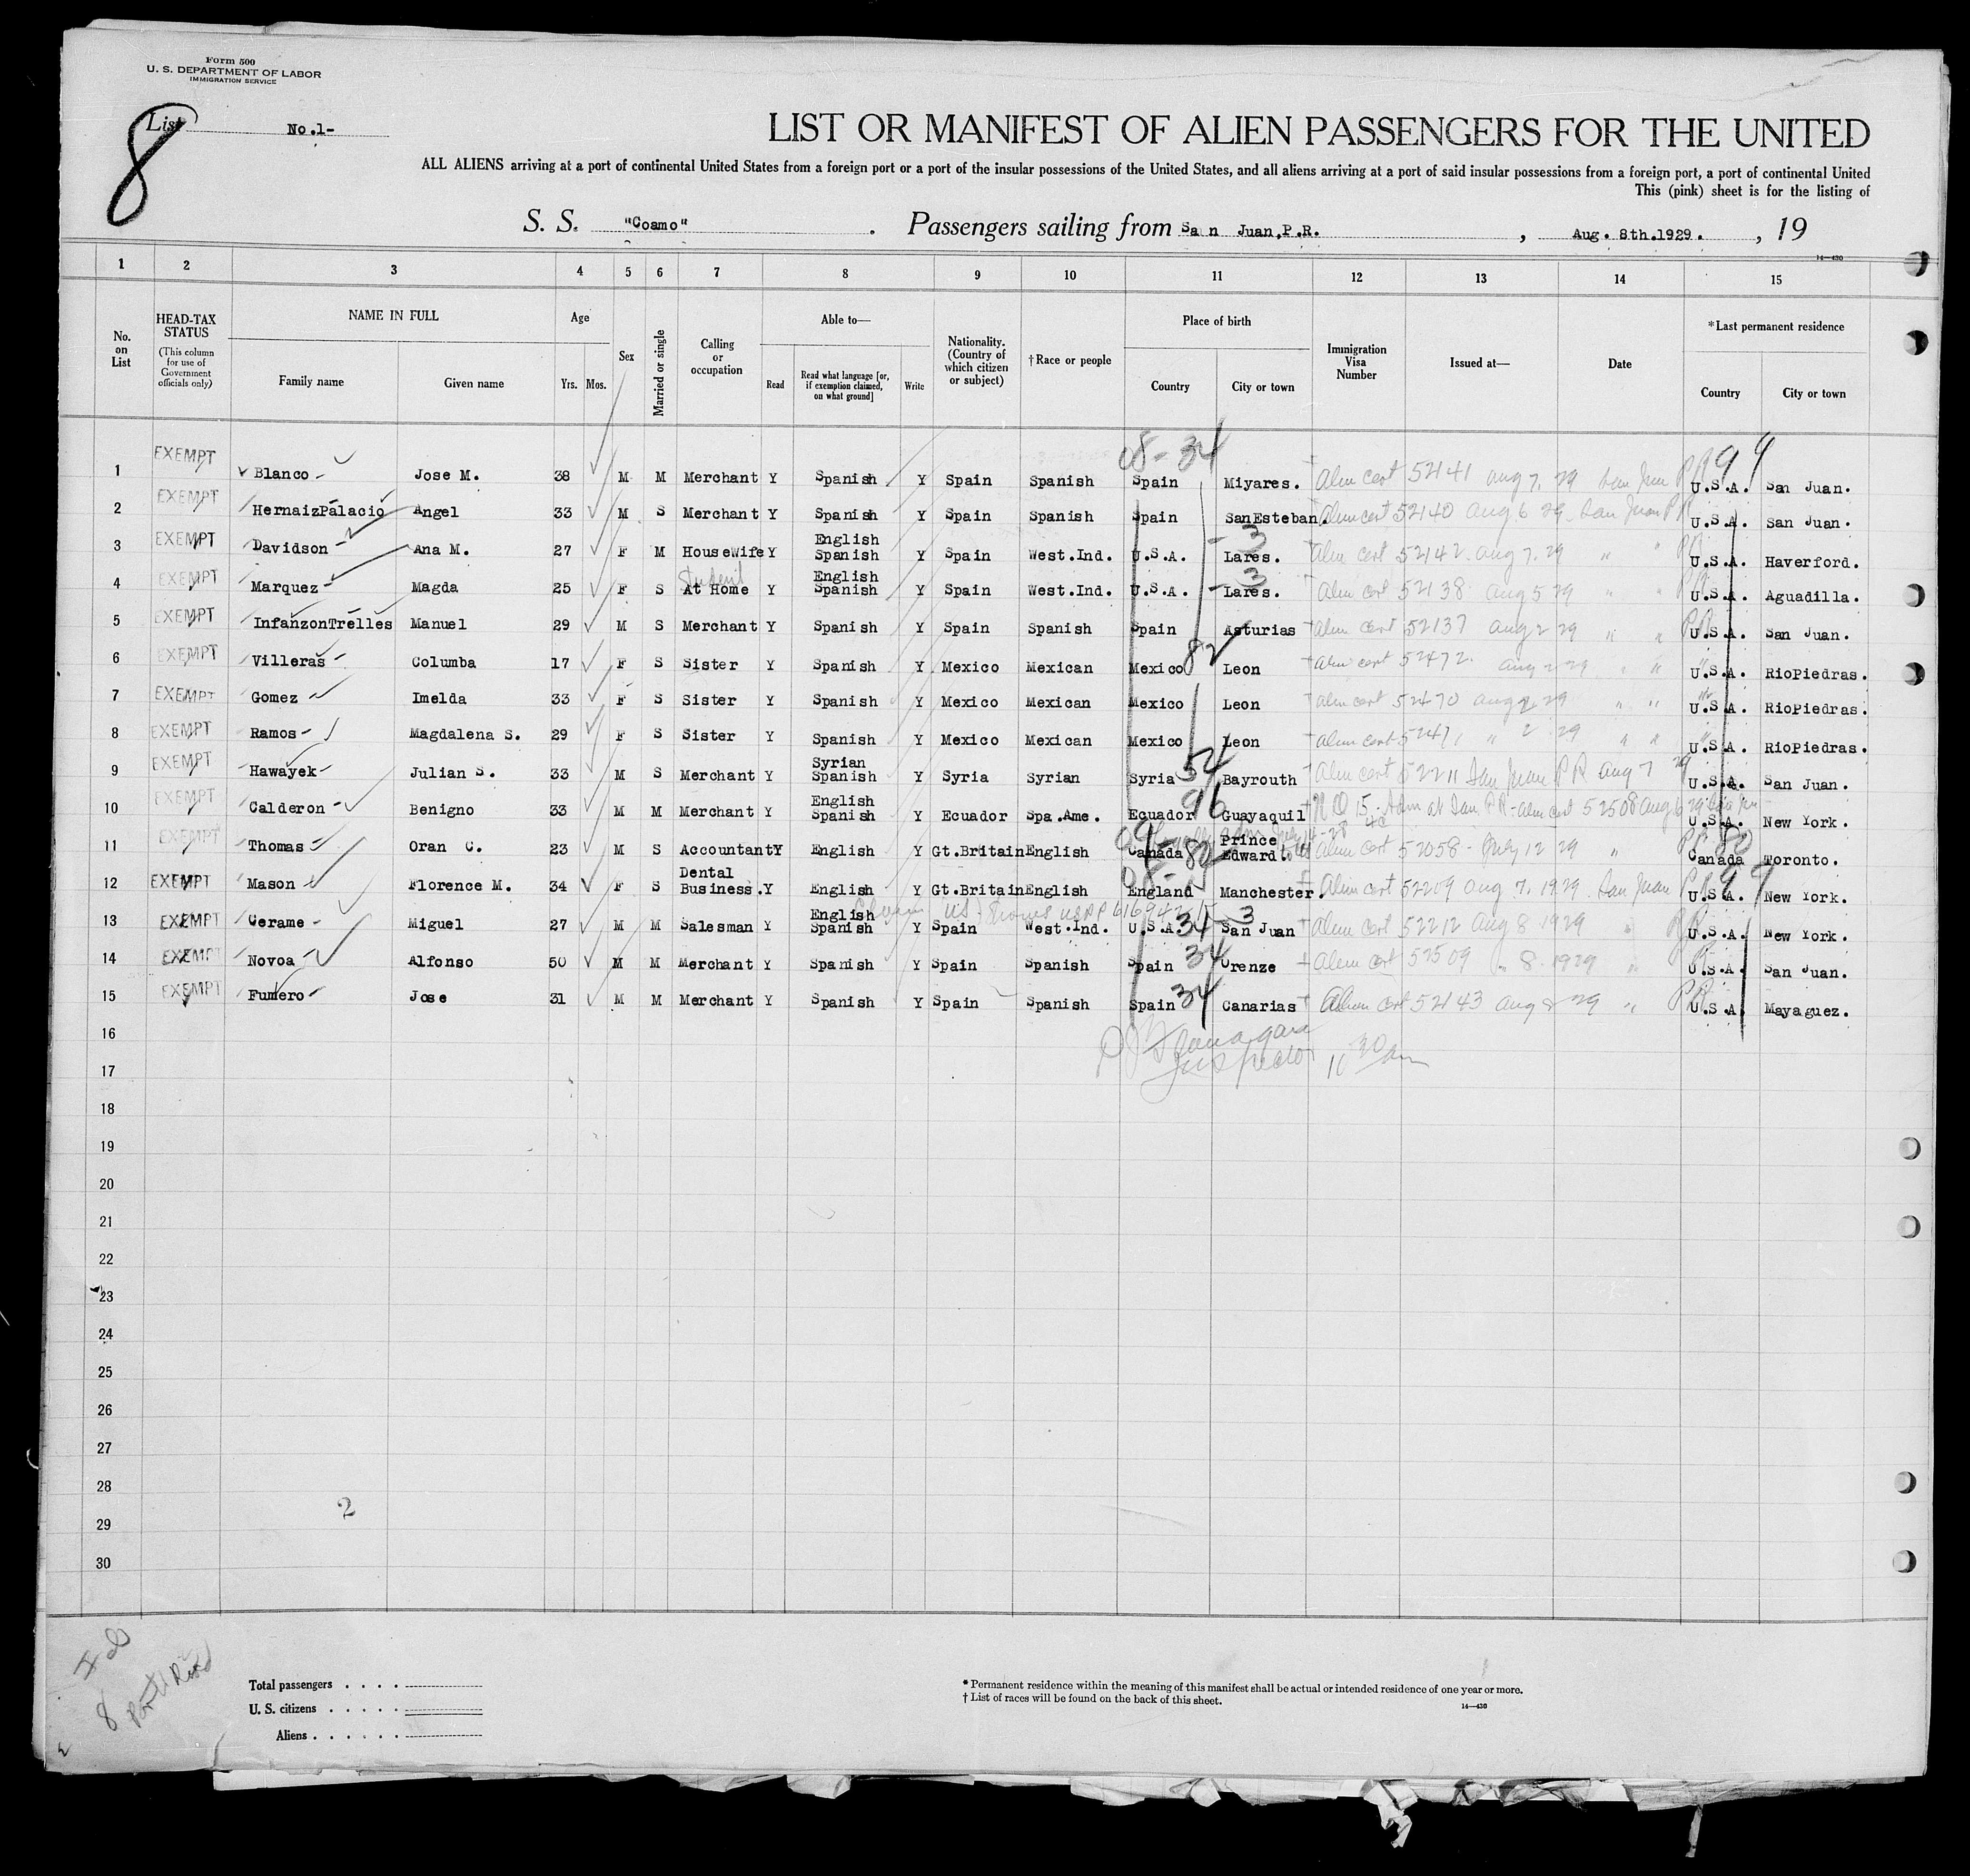 Form 500
U. S. DEPARTMENT OF LABOR
IMMIGRATION SERVICE
8
List No.1-
LIST OR MANIFEST OF ALIEN PASSENGERS FOR THE UNITED
ALL ALIENS arriving at a port of continental United States from a foreign port or a port of the insular possessions of the United States, and all aliens arriving at a port of said insular possessions from a foreign port, a port of continental United
This (pink) sheet is for the listing of
S. S. "Coamo" . Passengers sailing from San Juan,P.R. , Aug. 8th.1929. , 19
14—430
1 2 3 4 5 6 7 8 9 10 11 12 13 14 15
No. on List
HEAD-TAX STATUS
(This column for use of Government officials only)
NAME IN FULL
Family name Given name
Age
Yrs. Mos.
Sex
Married or single
Calling or occupation
Able to—
Read
Read what language [or, if exemption claimed, on what ground]
Write
Nationality. (Country of which citizen or subject)
†Race or people
Place of birth
Country City or town
Immigration Visa Number
Issued at—
Date
*Last permanent residence
Country City or town
08-34 99
1 EXEMPT Blanco Jose M. 38 M M Merchant Y Spanish Y Spain Spanish Spain Miyares. Alien cert 52141 Aug 7, 29 San Juan PR U.S.A. San Juan.
2 EXEMPT HernaizPalacio Angel 33 M S Merchant Y Spanish Y Spain Spanish Spain SanEsteban. Alien cert 52140 Aug 6 29 San Juan PR U.S.A. San Juan.
3 EXEMPT Davidson Ana M. 27 F M Housewife Y English Spanish Y Spain West.Ind. U.S.A. -3 Lares. Alien cert 52142 Aug 7. 29 " " PR U.S.A. Haverford.
4 EXEMPT Marquez Magda 25 F S Student At Home Y English Spanish Y Spain West.Ind. U.S.A. -3 Lares. Alien cert 52138 Aug 5 29 " " PR U.S.A. Aguadilla.
5 EXEMPT InfanzonTrelles Manuel 29 M S Merchant Y Spanish Y Spain Spanish Spain Asturias Alien cert 52137 Aug 2 29 " " PR U.S.A. San Juan.
6 EXEMPT Villeras Columba 17 F S Sister Y Spanish Y Mexico Mexican Mexico 82 Leon Alien cert 52472 Aug 2 29 " " " U.S.A. RioPiedras.
7 EXEMPT Gomez Imelda 33 F S Sister Y Spanish Y Mexico Mexican Mexico Leon Alien cert 52470 Aug 2 29 " " " U.S.A. RioPiedras.
8 EXEMPT Ramos Magdalena S. 29 F S Sister Y Spanish Y Mexico Mexican Mexico Leon Alien cert 52471 " 2 29 " " " U.S.A. RioPiedras.
9 EXEMPT Hawayek Julian S. 33 M S Merchant Y Syrian Spanish Y Syria Syrian Syria 54 Bayrouth Alien cert 52211 San Juan PR Aug 7 29 U.S.A. San Juan.
10 EXEMPT Calderon Benigno 33 M M Merchant Y English Spanish Y Ecuador Spa.Ame. Ecuador 96 Guayaquil Adm at San PR - alien cert 52508 Aug U.S.A. New York.
11 EXEMPT Thomas Oran C. 23 M S Accountant Y English Y Gt.Britain English Canada 80 Prince Edward. Alien cert 52058 - July 12 29 " PR 80 Canada Toronto.
12 EXEMPT Mason Florence M. 34 F S Dental Business. Y English Y Gt.Britain English England Manchester. Alien cert 52209 Aug 7. 1929 San Juan PR 99 U.S.A. New York.
13 EXEMPT Cerame Miguel 27 M M Salesman Y English Spanish Y Spain West.Ind. U.S.A. 34 -3 San Juan Alien cert 52212 Aug 8 1929 " PR U.S.A. New York.
14 EXEMPT Novoa Alfonso 50 M M Merchant Y Spanish Y Spain Spanish Spain 34 Orenze Alien cert 52509 " 8 1929 " PR U.S.A. San Juan.
15 EXEMPT Fumero Jose 31 M M Merchant Y Spanish Y Spain Spanish Spain 34 Canarias Alien cert 52143 Aug 8 29 " PR U.S.A. Mayaguez.
16
Inspector 11 30 am
17
18
19
20
21
22
23
24
25
26
27
28
2
29
30
Total passengers
U. S. citizens
Aliens
* Permanent residence within the meaning of this manifest shall be actual or intended residence of one year or more.
† List of races will be found on the back of this sheet.
14—430
8